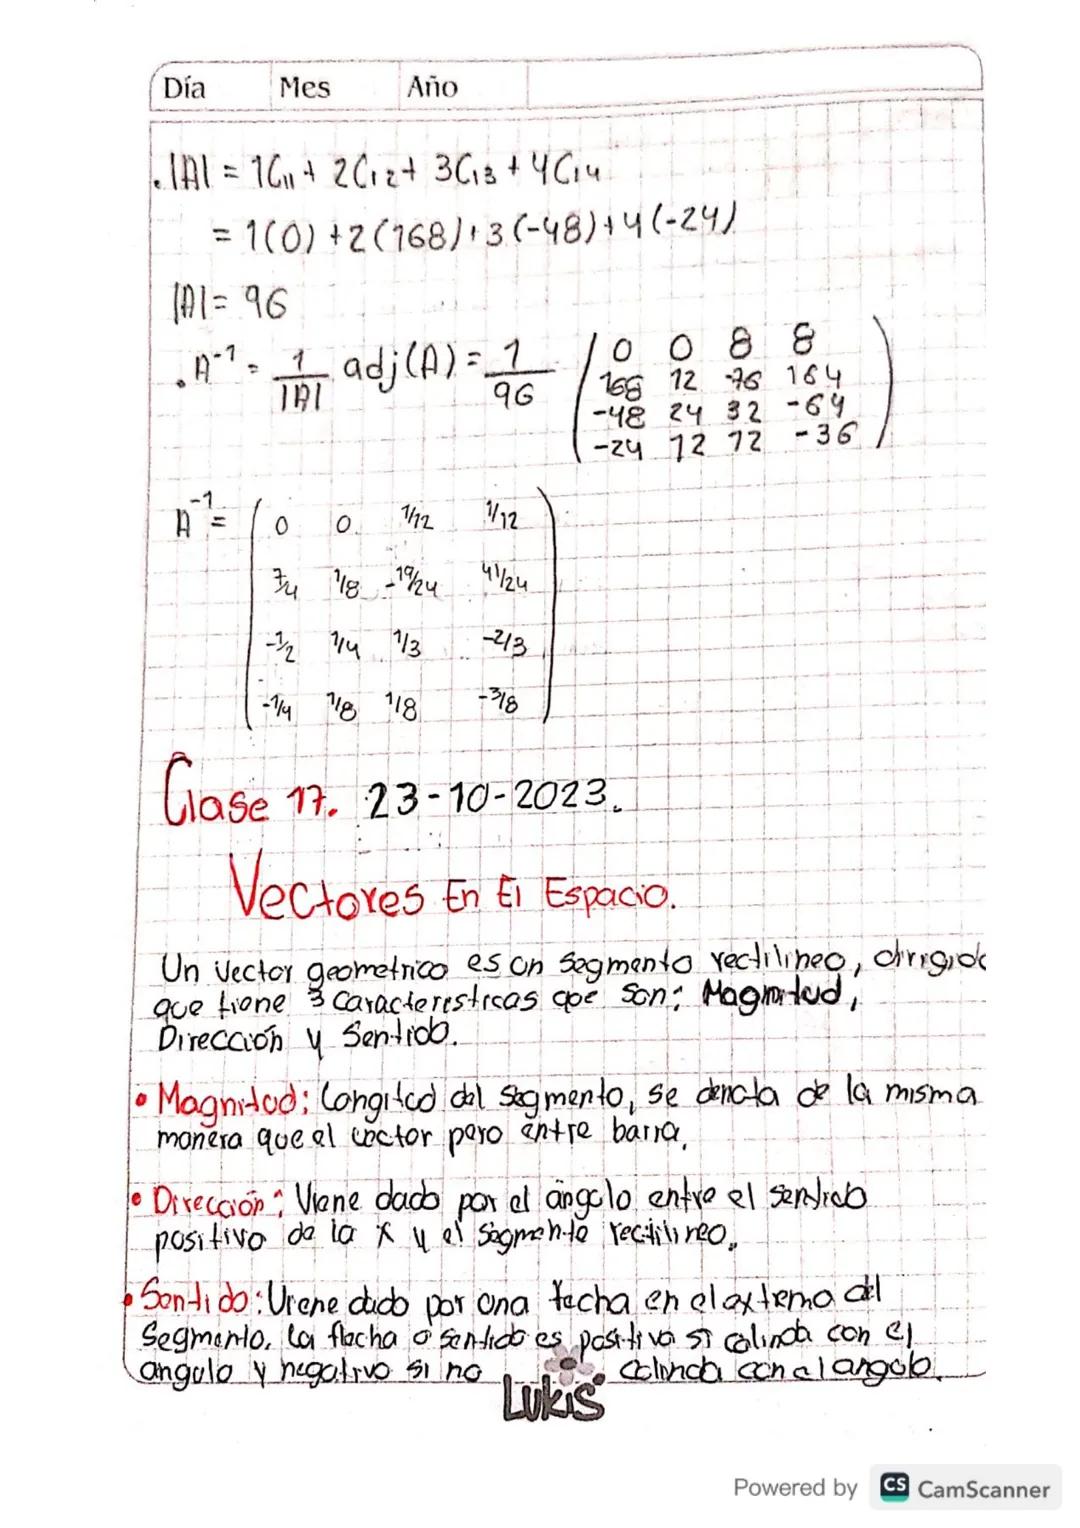 Día Mes Año
. |A| = 1C11 + 2C12 + 3C13 + 4C14
= 1(0) + 2(168) + 3(-48) + 4(-24)
|A| = 96
. A-1 = 1/|A| adj(A) = 1/96 ( 0 0 8 8
168 12 -76 164
-48 24 32 -64
-24 12 12 -36 )
A-1 = ( 0 0 1/12 1/12
7/4 1/8 -19/24 41/24
-1/2 1/4 1/3 -2/3
-1/4 1/8 1/8 -3/8 )
Clase 17. 23-10-2023.
Vectores En El Espacio.
Un vector geometrico es un segmento rectilineo, dirigido
que tiene 3 caracteresticas que son: Magnitud,
Dirección y Sentido.
• Magnitud: Longitud del segmento, se denota de la misma
manera que el vector pero entre barra.
• Dirección: Viene dado por el angulo entre el sentido
positivo de la x y el segmento rectilineo.
• Sentido: Viene dado por una fecha en el extemo del
Segmento. La flecha o sentido es positiva si colinda con el
angulo y negativo si no colinda con el angulo.
Lukis
Powered by CS CamScanner